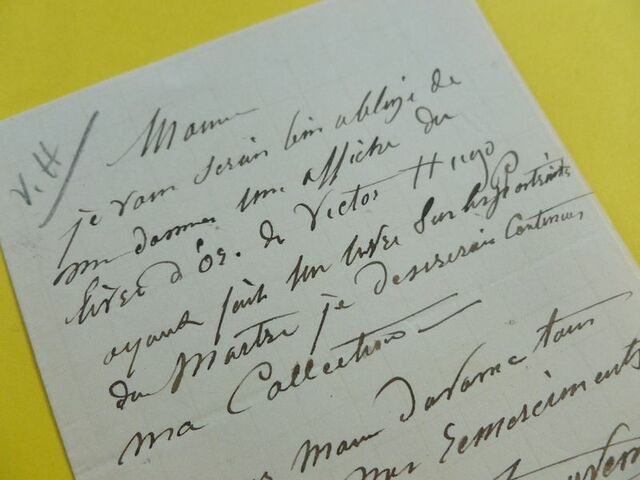 V. H
je vous serais bien obligé de
me donner une affiche du
livre d'Or. de Victor Hugo
ayant fait un livre sur les Portraits
du Maitre je desirerais Continuer
ma Collection
davance tous
mes remerciments